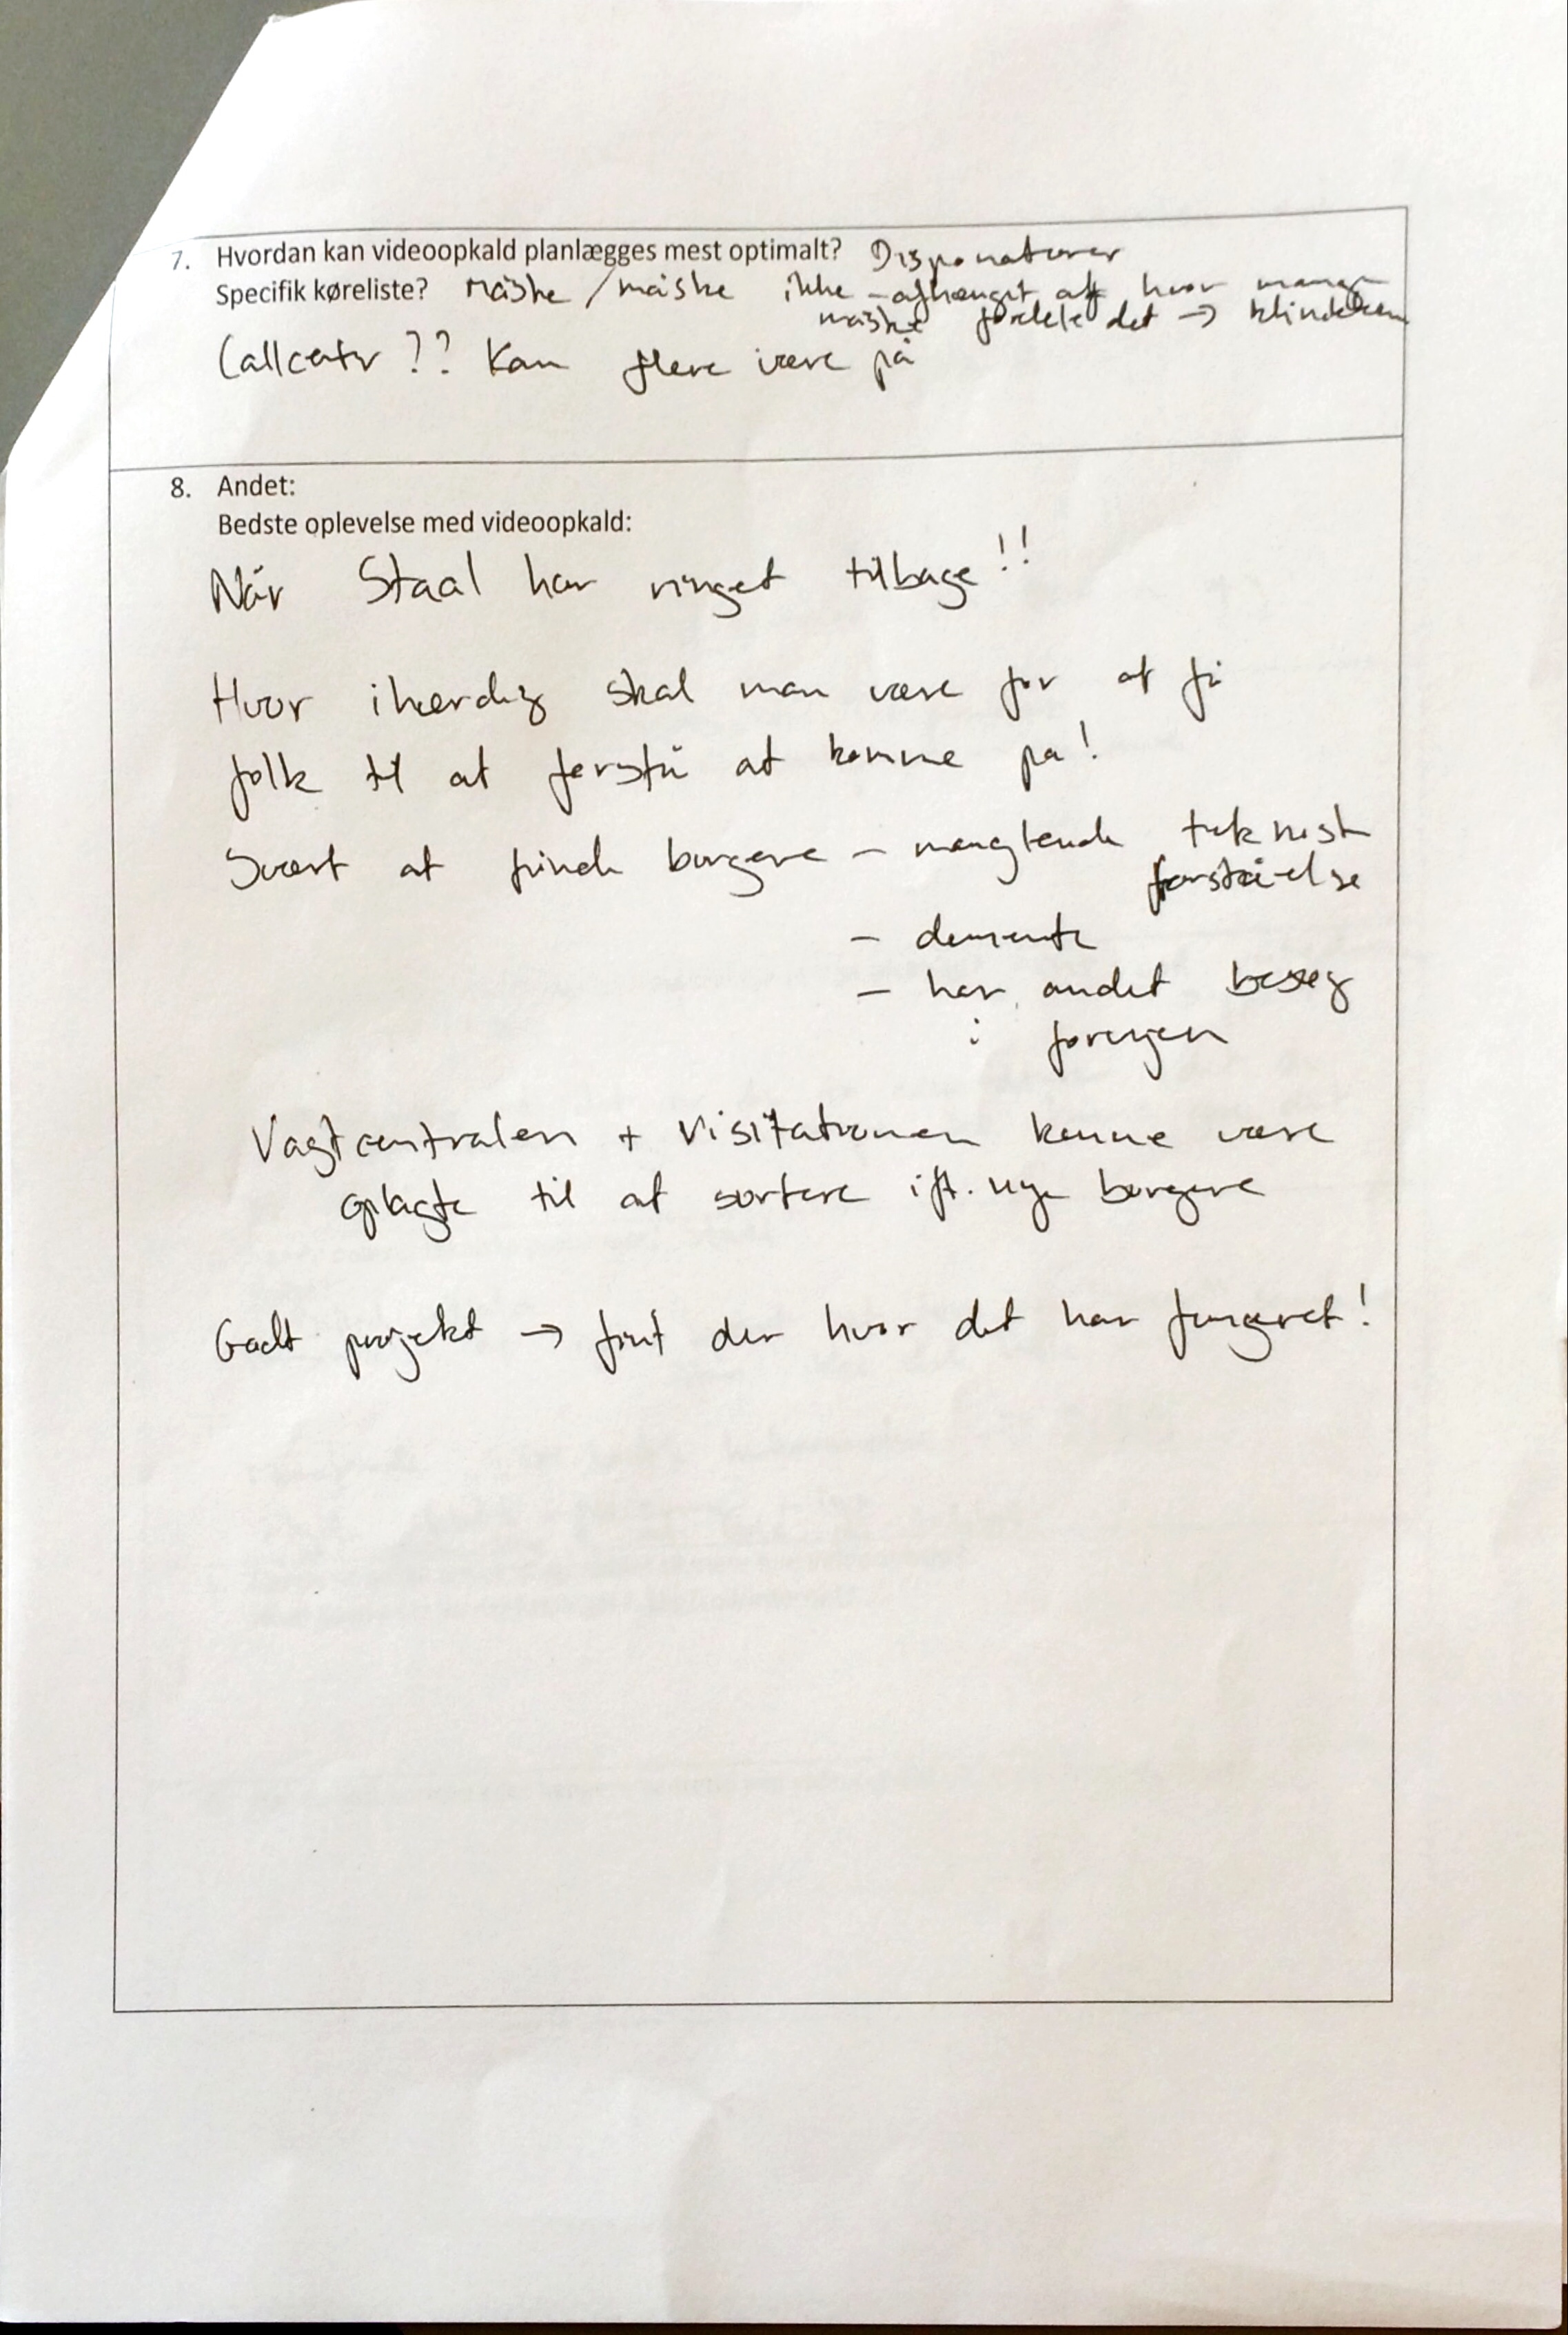 7. Hvordan kan videoopkald planlægges mest optimalt? Disponatorer
Specifik køreliste? Måske / måske ikke - afhængigt af hvor mange
måske fordele det →
Callcenter ?? Kan flere være på
8. Andet:
Bedste oplevelse med videoopkald:
Når Staal har ringet tilbage!!
Hvor ihærdig skal man være for at få
folk til at forstå at komme på!
Svært at finde borgere - manglende teknisk
forståelse
- demente
- har andet besøg
i forvejen
Vagtcentralen + Visitationen kunne være
oplagte til at sortere ift. nye borgere
Godt projekt → fint der hvor det har fungeret!